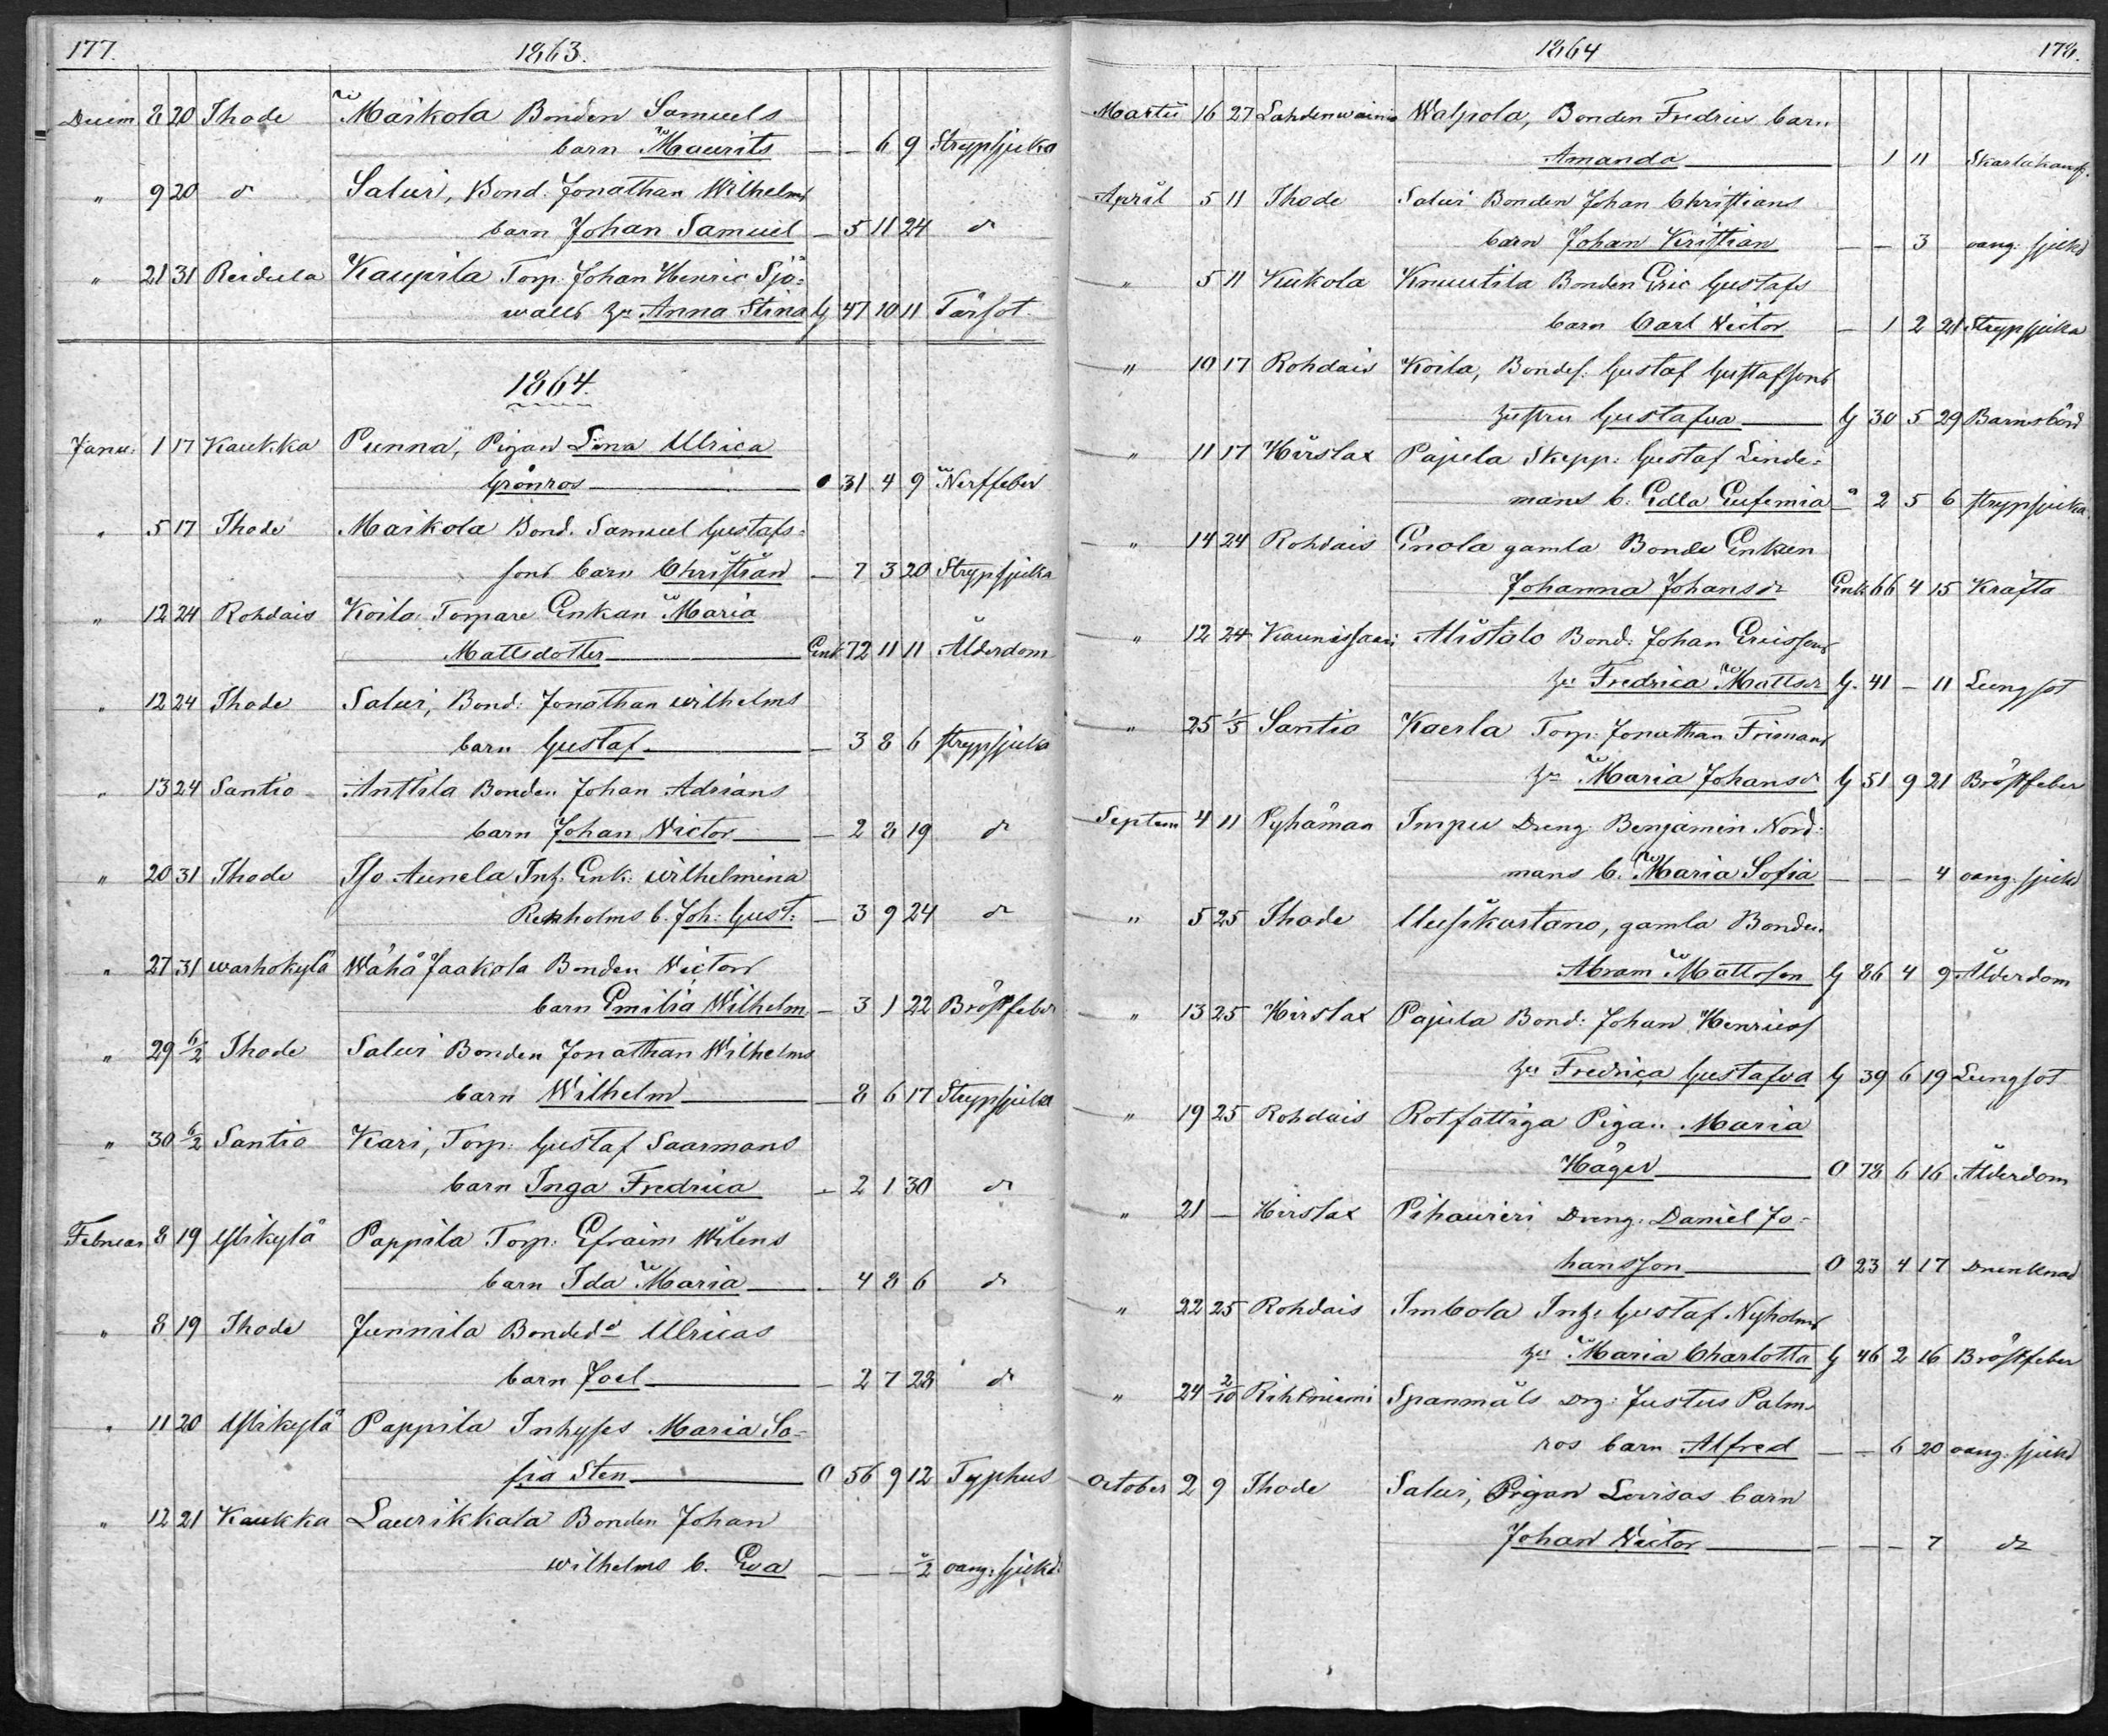 177. 1863.
Decem 8 20 Ihode Maikola Bonden Samuels
barn Maurits — — 6 9 Strypsjuka
" 9 20 d Saluri, Bond. Jonathan Wilhelms
barn Johan Samuel — 5 11 24 d
" 21 31 Reidula Kaupila Torp. Johan Henric Sjö-
walls hu Anna Stina G 47 10 11 Tärsot
1864.
Janu. 1 17 Kaukka Punna, Pigan Lina Ulrica
Grönros O 31 4 9 Nerffeber
" 5 17 Ihode Maikola Bond. Samuel Gustafs-
sons barn Christian — 7 3 20 Strypsjuka
" 12 24 Rohdais Koila Torpare Enkan Maria
Mattsdotter Enk 72 11 11 Ålderdom
" 12 24 Ihode Saluri, Bond: Jonathan wilhelms
barn Gustaf — 3 8 6 strypsjuka
" 13 24 Santio Anttila Bonden Johan Adrians
barn Johan Victor — 2 8 19 d
" 20 31 Ihode Iso Aunela Inh. Enk. wilhelmina
Renholms b. Joh: Gust: — 3 9 24 d
" 27 31 warhokylä Wähä Jaakola Bonden Victors
barn Emilia Wilhelm — 3 1 22 Bröstfeber
" 29 6/2 Ihode Saluri Bonden Jonathan Wilhelms
barn Wilhelm — 8 6 17 Strypsjuka
" 30 6/2 Santio Kari, Torp. Gustaf Saarmans
barn Inga Fredrica — 2 1 30 d
Februar 8 19 Ylikylä Pappila Torp: Efraim Wilens
barn Ida Maria — 4 8 6 d
" 8 19 Ihode Junnila Bonded Ulricas
barn Joel — 2 7 28 d
" 11 20 Ylikylä Pappila Inhyses Maria So-
fia Sten O 56 9 12 Typhus
" 12 21 Kaukka Laurikkala Bonden Johan
wilhelms b. Eva — — — 1/2 oang: sjukd:
1864 178.
Martii 16 27 Lahdenwainio Walpola, Bonden Fredrics barn
Amanda 1 11 Skarlakansf.
April 5 11 Ihode Saluri Bonden Johan Christians
barn Johan Kristian — — 3 oang: sjukd
" 5 11 Kukola Knuutila Bonden Eric Gustafs
barn Carl Victor — 1 2 21 Strypsjuka
" 10 17 Rohdais Koila, Bondes. Gustaf Gustafsons
hustru Gustafva G 30 5 29 Barnsbörd
" 11 17 Hirslax Pajula Skepp: Gustaf Linde-
mans b: Edla Eufemia 2 5 6 strypsjuka
" 14 24 Rohdais Einola gamla Bonde Enkan
Johanna Johansdr Enk 66 4 15 Kräfta
" 12 24 Kaunissaari Alistalo Bond: Johan Ericssons
hu Fredrica Mattsdr G. 41 — 11 Lungsot
" 25 1/5 Santio Kaerla Torp: Jonathan Frimans
hu Maria Johansdr G 51 9 21 Bröstfeber
Septem 4 11 Pyhämaa Impu Dreng: Benjamin Nord-
mans b. Maria Sofia — — — 4 oang: sjukd
" 5 25 Ihode Uusikartano, gamla Bonden
Abram Mattsson G 86 4 9 Ålderdom
" 13 25 Hirslax Pajula Bond: Johan Henrics
hu Fredrica Gustafva G 39 6 19 Lungsot
" 19 25 Rohdais Rotfattiga Pigan Maria
Häger O 78 6 16 Ålderdom
" 21 — Hirslax Pihauriri Dreng: Daniel Jo-
hansson O 23 4 17 Drunknad
" 22 25 Rohdais Imbola Inh: Gustaf Nyholms
hu Maria Charlotta G 46 2 16 Bröstfeber
" 24 2/10 Rihtniemi Spanmäls Drg: Justus Palm-
ros barn Alfred — — 6 20 oang. sjukd
October 2 9 Ihode Saluri, Pigan Lovisas barn
Johan Victor — — — 7 d